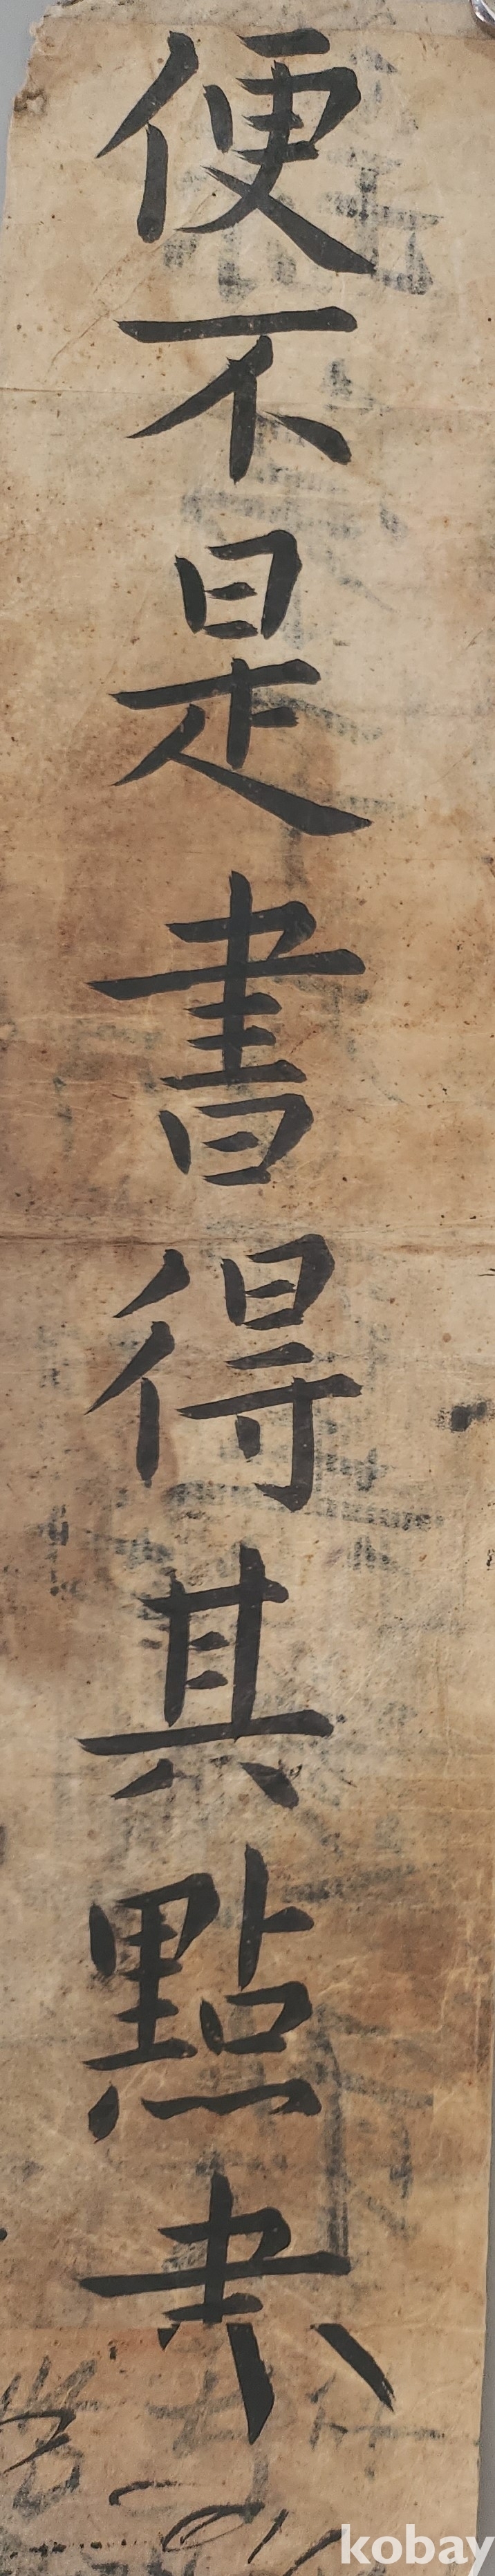 便不是書得其點
kobay